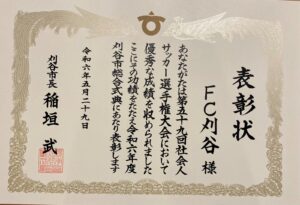 表彰状
FC刈谷 様
あなたがたは第五十九回社会人
サッカー選手権大会において
優秀な成績を収められました
ここにその功績をたたえ令和六年度
刈谷市総合式典にあたり表彰します
令和六年五月二十九日
刈谷市長 稲垣 武